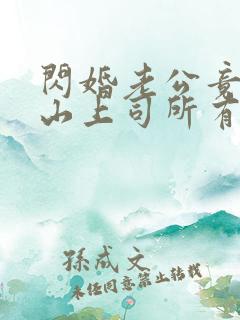 閃婚老公竟
山上司所有
孫成文
未经同意禁止转载